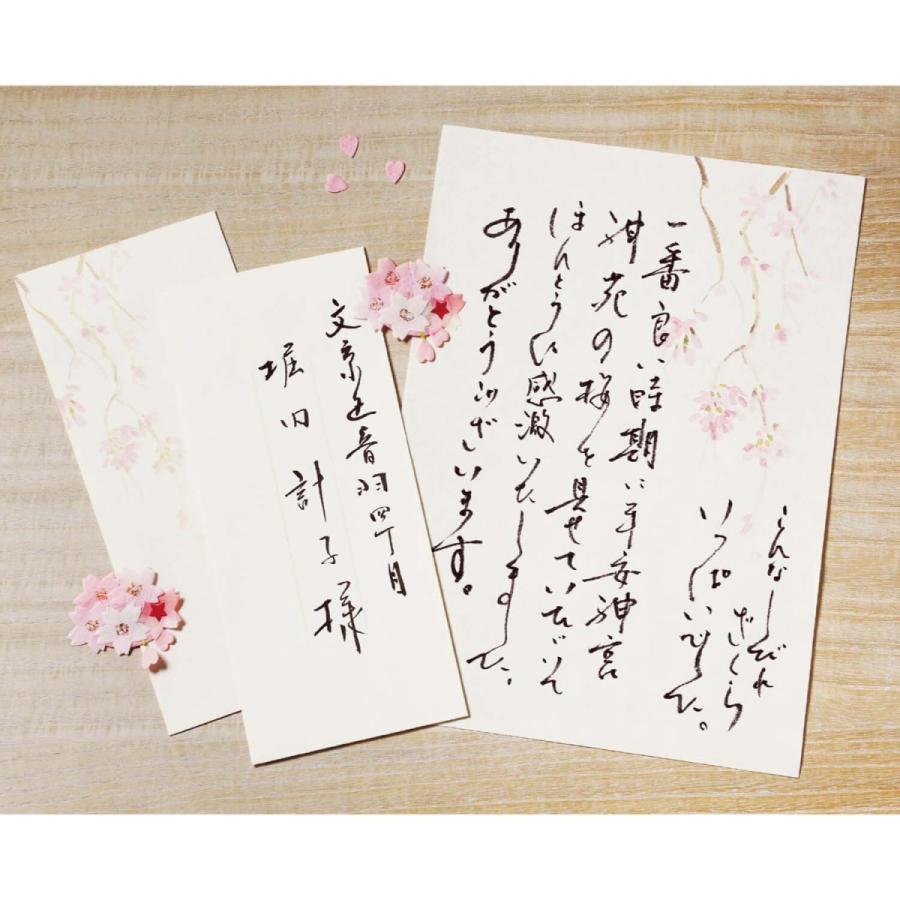 一番良い時期に平安神宮
神苑の桜を見せていただいて
ほんとうに感激いたしました。
ありがとうございます。
こんなしだれ
ざくら
いっぱいでした。
文京区音羽四丁目
堀内計子様